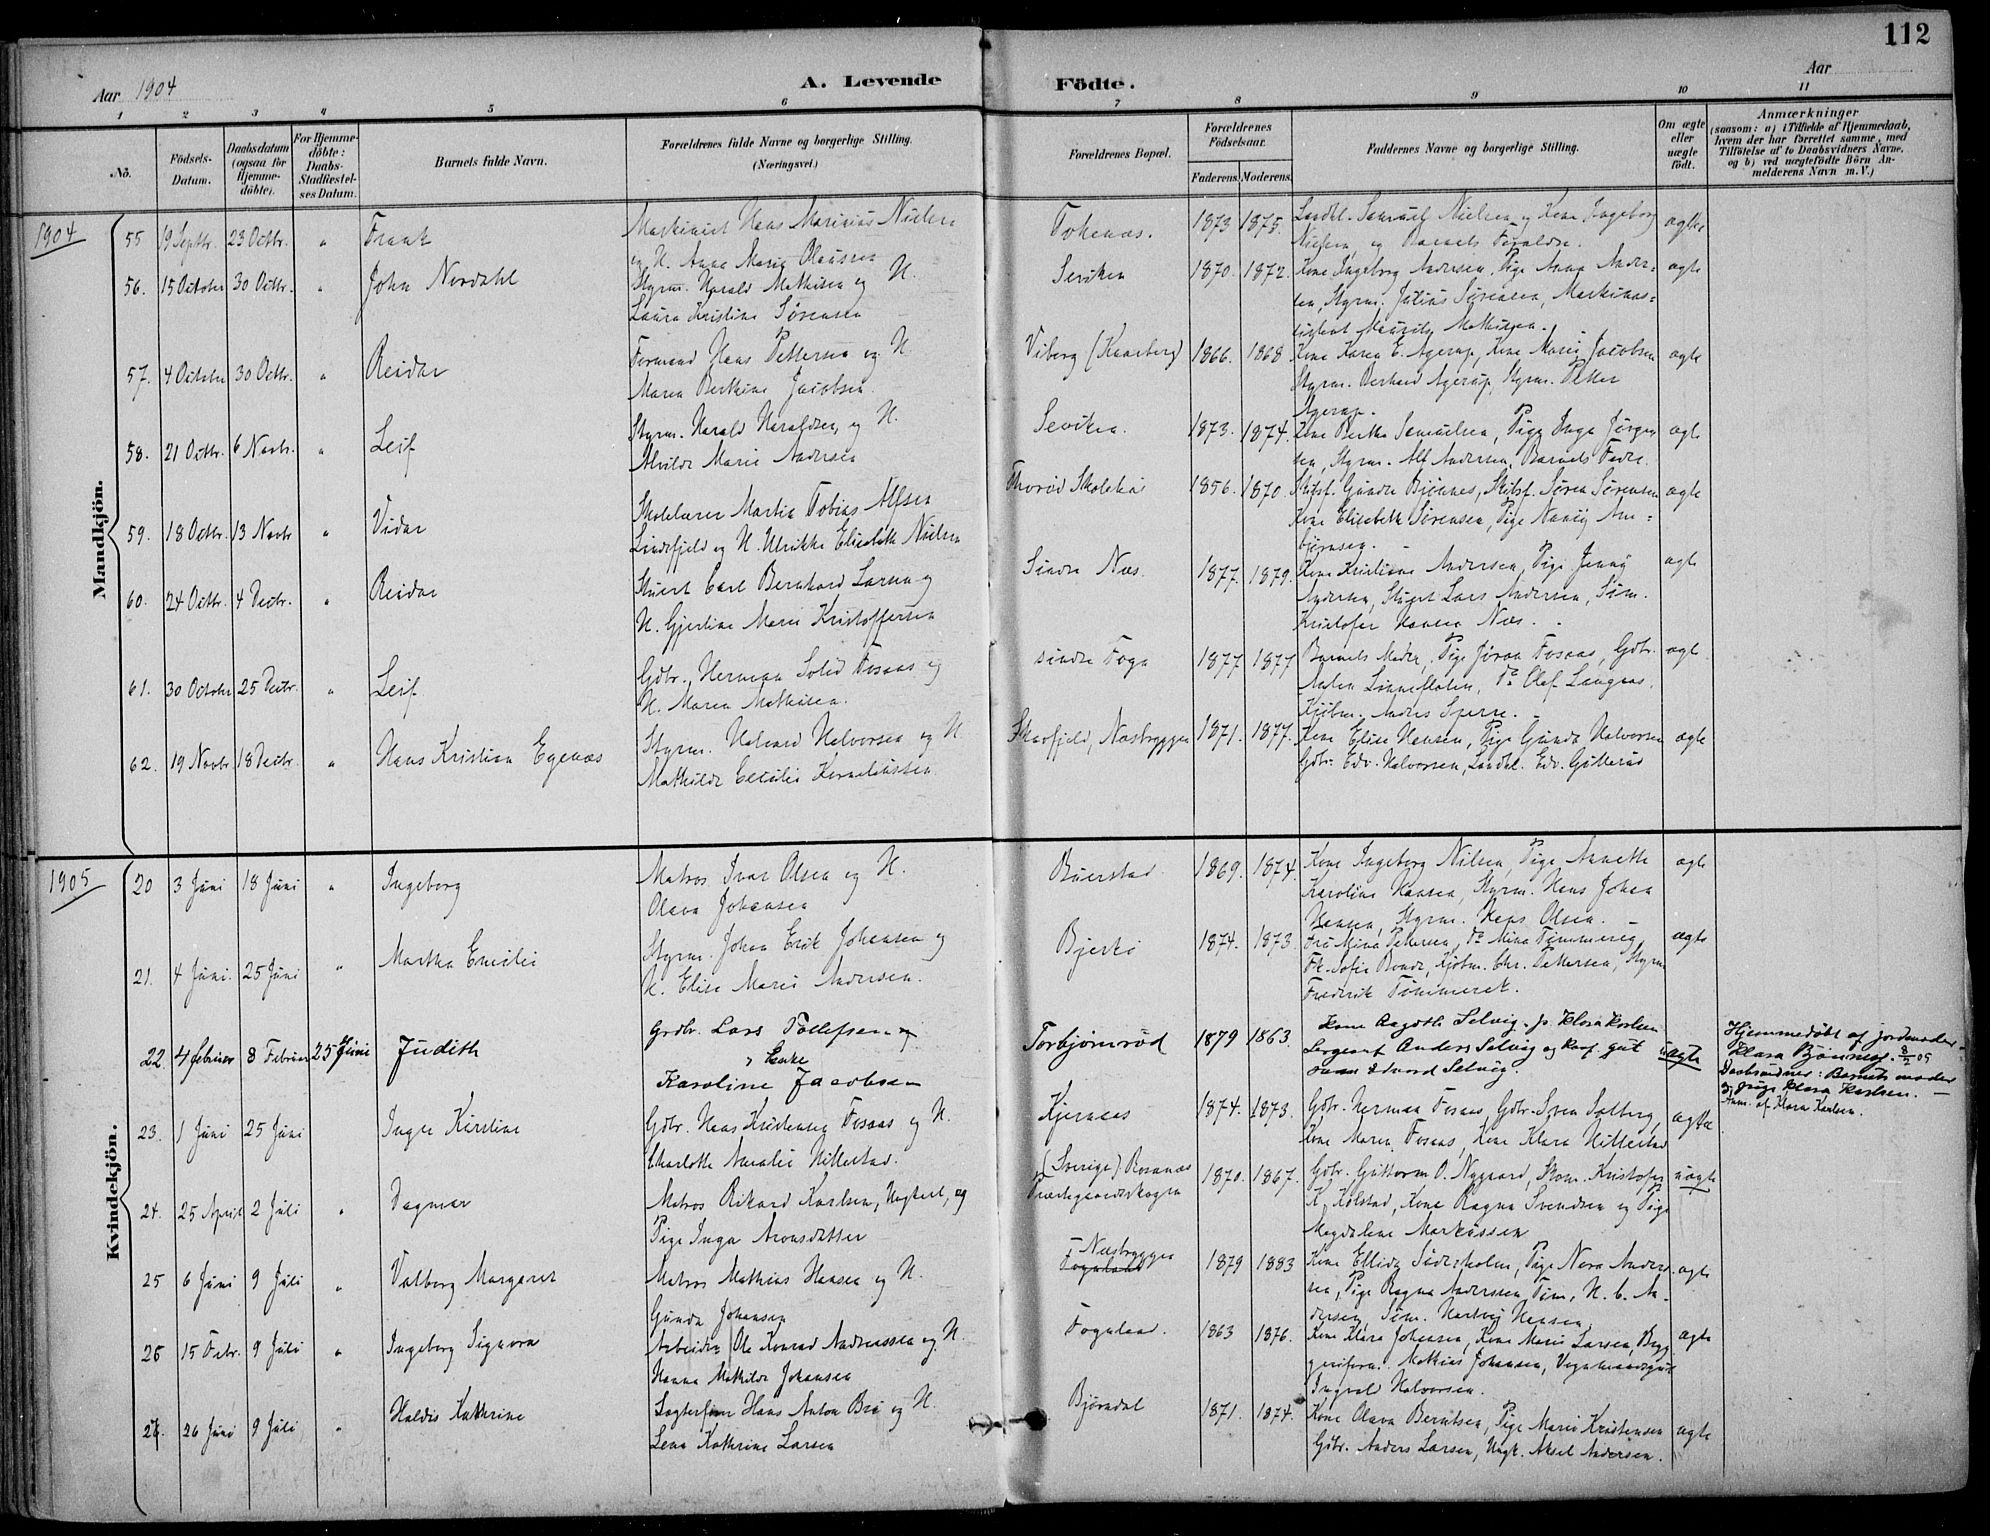 112
Aar 1904
A. Levende
Födte.
Aar
1 2 3 4 5 6 7 8 9 10 11
No.
Födsels-
Datum.
Daabsdatum
(ogsaa for
Hjemme-
döbte).
For Hjemme-
döbte:
Daabs-
Stadfæstel-
ses Datum.
Barnets fulde Navn.
Forældrenes fulde Navne og borgerlige Stilling.
(Næringsvei.)
Forældrenes Bopæl.
Forældrenes
Födselsaar.
Faderens. Moderens.
Faddernes Navne og borgerlige Stilling.
Om ægte
eller
uægte
födt.
Anmærkninger
(saasom: a) i Tilfælde af Hjemmedaab,
hvem der har forrettet samme, med
Tilföielse af to Daabsvidners Navne,
og b) ved uægtefödte Börn An-
melderens Navn m. V.)
1904
Mandkjön.
55 19 Septbr. 23 Octbr. " Frank
Maskinist Hans Marinius Nielsen
og H. Anne Marie Olaussen
1873 1875.
Landhl. Samuel Nielsen, og Kone Ingeborg
Nielsen, og Barnets Forældre.
ægte
56. 15 October 30 Octbr. " John Nordahl
Styrm. Harald Mathisen og H.
Laura Kristine Sørensen
Seviken 1870. 1872.
Kone Ingeborg Andersen, Pige Anna Ander-
sen, Styrm. Julius Sørensen, Maskinas-
sistent Mauritz Mathisen.
ægte
57. 4 October 30 Octbr. " Reidar
Formand Hans Pettersen og H.
Maren Berthine Jacobsen.
Viberg (Kaarberg) 1866. 1868
Kone Karen E. Agerup, Kone Marie Jacobsen
Styrm. Berhard Agerup, Styrm. Petter
Agerup.
ægte
58. 21 Octbr. 6 Novbr. " Leif
Styrm. Harald Haraldsen, og H.
Alvilde Marie Andersen
Seviken. 1873. 1874.
Kone Berthe Samuelsen, Pige Inga Jørgen
sen, Styrm. Alf Andersen, Barnets Fader.
ægte
59. 18 Octbr. 13 Novbr " Vidar
Skolelærer Martin Tobias Alfsen
Lindefjeld og H. Ulrikke Elisabeth Nielsen
Thorød Skolehus 1856. 1870.
Skibsf. Gunder Bjønnes, Skibsf. Søren Sørensen
Kone Elisabeth Sørensen, Pige Nanny Am-
bjørnsen.
ægte
60. 24 Octbr. 4 Decbr. " Reidar
Stuert Carl Bernhard Larsen og
H. Gjertine Marie Kristoffersen
Søndre Næs. 1877. 1879.
Kone Kristiane Andersen, Pige Jenny
Andersen, Stuert Lars Andersen, Tøm.
Kristofer Hansen Næs.
ægte
61. 30 October 25 Decbr. " Leif
Gdbr. Herman Solid Fosaas og
H. Maren Mathisen.
søndre 1877 1877
Barnets Moder, Pige Jøran Fosaas, Gdbr.
Anders Sperre.
ægte
62. 19 Novbr 18 Decbr. " Hans Kristian Egenæs
Styrm. Halvard Halvorsen og H.
Mathilde Cecilie Korneliussen
Skarfjeld, Næsbryggen 1871. 1877.
Kone Elise Hansen, Pige Gunda Halvorsen
Gdbr. Edv. Halvorsen, Landhl. Edv. Gutterud
ægte
1905
Kvindekjön.
20 3 Juni 18 Juni " Ingeborg
Matros Ivar Olsen og H.
Olava Johansen
Buerstad. 1869. 1874.
Kone Ingeborg Nilsen, Pige Annette
Karoline Hansen, Styrm. Hans Johan
Hansen, Styrm. Hans Olsen.
ægte
21. 4 Juni. 25 Juni " Martha Emilie
Styrm. Johan Erik Johansen og
H. Elise Marie Andersen.
Bjerkø 1874. 1873.
Fru Mina Pettersen, Do Mina Tømmereg,
Fk. Sofie Bonde, Kjøbm. Chr. Pettersen, Styrm
Frederik Tømmerek.
ægte
22. 4 februar 8 Februar 25 Juni Judith
Grdbr. Lars Tollefsen og
" Enke
Karoline Jacobsen
Torbjørnrød 1879 1863.
Kone Ragnth. Selvig. p. Klara Karlsen
Sergeant Anders Selvig og konf. gut
Edvard Selvig.
uægte
Hjemmedøbt af jordmoder
Klara Bjønnes. 8/2 05
Daabsvidner: Barnets moder
og pige Klara Karlsen.
Anm. af Klara Karlsen.
23. 1 Juni 25 Juni " Inger Kirstine
Gdbr. Hans Kristensen Fosaas og H.
Charlotte Amalie Hillestad.
Kjernaas 1874. 1873.
Gdbr. Herman Fosaas, Gdbr. Sven Solberg,
Kone Maren Fosaas, Kone Klara Hillestad
ægte
24. 25 April 2 Juli " Dagmar
Matros Rikard Karlsen, Ungkarl, og
Pige Inga Aronsdatter
(Sverige) Rosanæs
Præstegaardsskogen 1870. 1867.
Gdbr. Guttorm O. Nygaard, Skom. Kristofer
K. Kolstad, Kone Ragna Svendsen og Pige
Magdalene Markussen
uægte
25 6 Juni 9 Juli " Valborg Margaret
Matros Mathias Hansen og H.
Gunda Johansen
Næsbryggen
1879 1883
Kone Ellida Søderholm, Pige Nora Anders
sen, Pige Ragna Anderssen Tøm. H. C. An-
dersen, Tøm. Hartvig Hansen.
ægte
26 15 Febr. 9 Juli " Ingeborg Signora
Arbeider Ole Konrad Andreassen og H.
Hanna Mathilde Johansen
Fognland. 1863 1876.
Kone Klara Johansen, Kone Marie Larsen, Bryg-
geriform. Mathias Johansen, Vognmandsgut
Ingvald Halvorsen.
ægte
27. 26 Juni 9 Juli " Haldis Kathrine
Hans Anton Bre og H.
Lena Kathrine Larsen
Bjørndal 1871. 1874.
Kone Olava Berntsen, Pige Marie Kristensen
Gdbr. Anders Larsen, Ungk. Aksel Andersen.
ægte